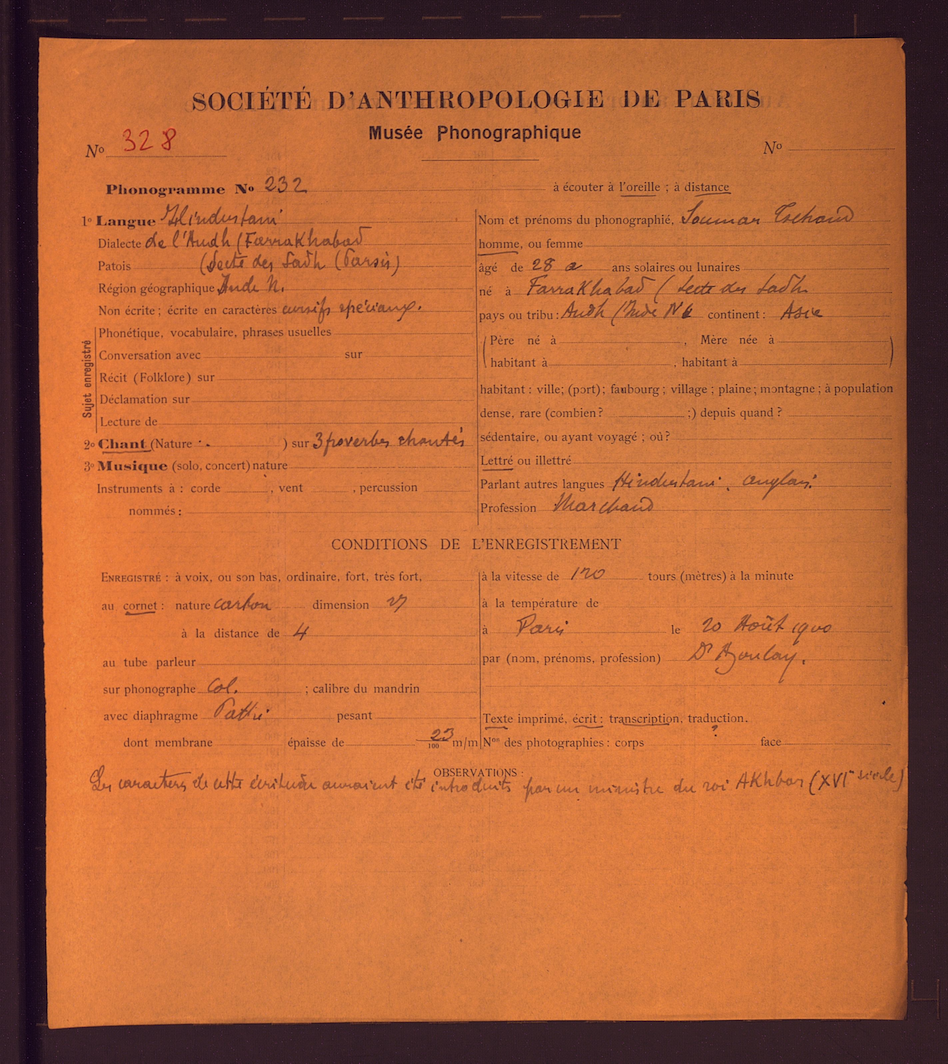 SOCIÉTÉ D'ANTHROPOLOGIE DE PARIS
Musée Phonographique
No 328
No
Phonogramme No 232 à écouter à l'oreille ; à distance
1o Langue Hindustani
Dialecte de l'Audh (Farrakhabad
Patois (Secte des Sadh (Parsis)
Région géographique Inde N.
Non écrite ; écrite en caractères cursifs spéciaux.
Sujet enregistré
Phonétique, vocabulaire, phrases usuelles
Conversation avec sur
Récit (Folklore) sur
Déclamation sur
Lecture de
2o Chant (Nature ) sur 3 proverbes chantés
3o Musique (solo, concert) nature
Instruments à : corde , vent , percussion
nommés :
Nom et prénoms du phonographié, Soumar Tschand
homme, ou femme
âgé de 28 a ans solaires ou lunaires
né à Farrakhabad (Secte des Sadh
pays ou tribu : Audh (Inde N continent : Asie
(Père né à , Mère née à )
habitant à , habitant à
habitant : ville; (port) ; faubourg ; village ; plaine; montagne ; à population
dense, rare (combien? ;) depuis quand ?
sédentaire, ou ayant voyagé ; où?
Lettré ou illettré
Parlant autres langues Hindustani, anglais
Profession Marchand
CONDITIONS DE L'ENREGISTREMENT
ENREGISTRÉ : à voix, ou son bas, ordinaire, fort, très fort,
au cornet : nature carton dimension 27
à la distance de 4
au tube parleur
sur phonographe Col. ; calibre du mandrin
avec diaphragme Pathé pesant
dont membrane épaisse de 23/100 m/m
à la vitesse de 170 tours (mètres) à la minute
à la température de
à Paris le 20 Août 1900
par (nom, prénoms, profession) Dr Azoulay.
Texte imprimé, écrit ; transcription, traduction.
?
Nos des photographies : corps face
OBSERVATIONS :
Les caractères de cette écriture auraient été introduits par un ministre du roi Akhbar (XVIe siècle)